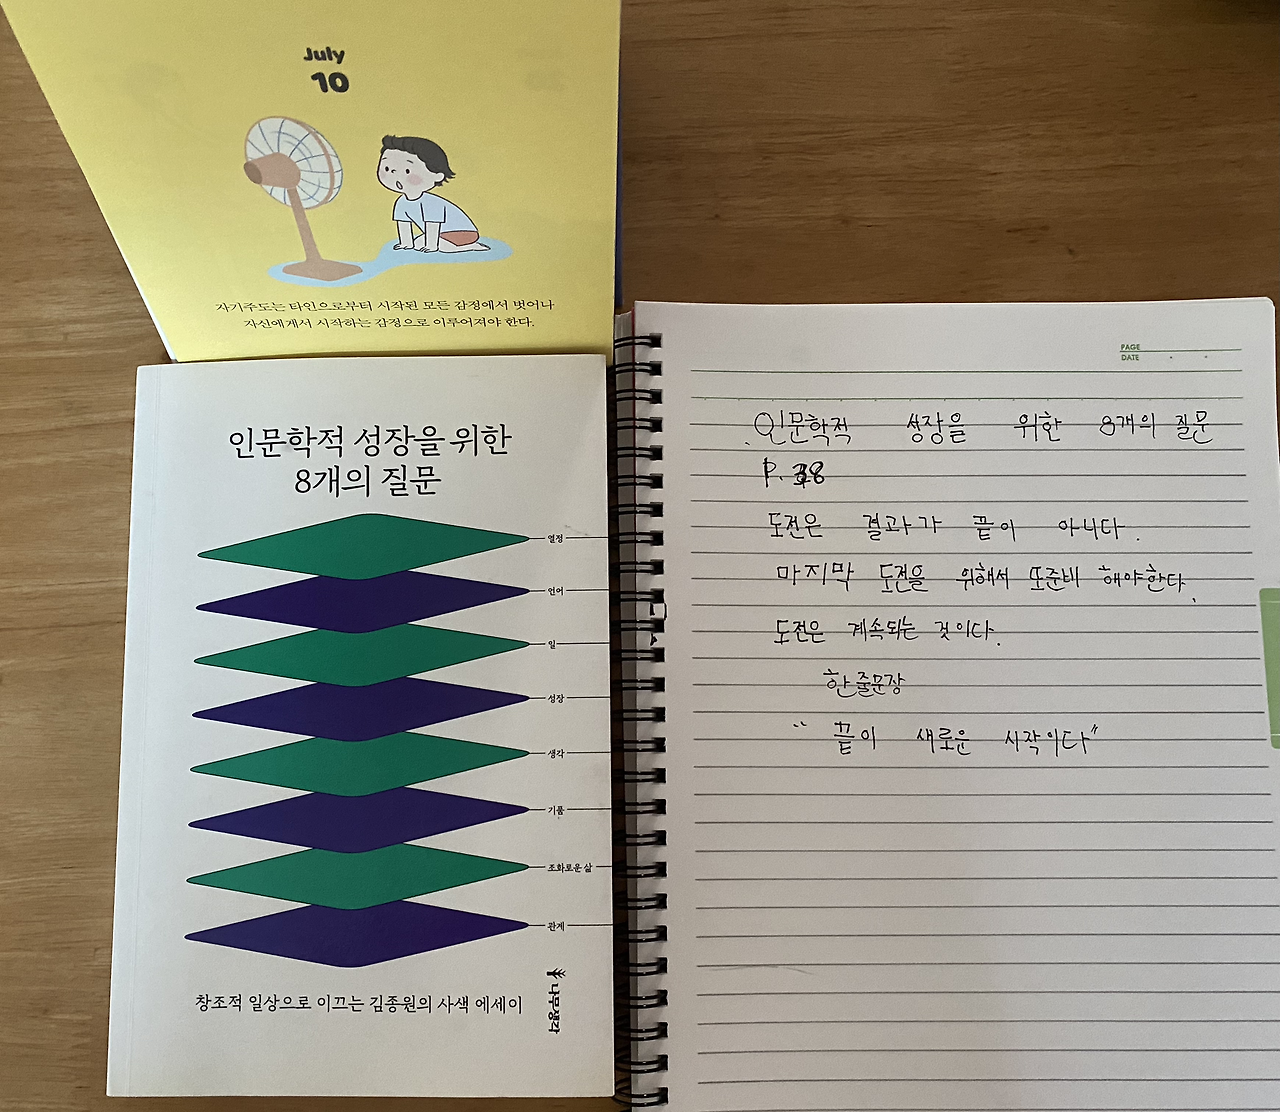 July
10
자기주도는 타인으로부터 시작된 모든 감정에서 벗어나
자신에게서 시작하는 감정으로 이루어져야 한다.
인문학적 성장을 위한
8개의 질문
열정
언어
일
성장
생각
기품
조화로운 삶
관계
창조적 일상으로 이끄는 김종원의 사색 에세이
나무생각
PAGE
DATE
인문학적 성장을 위한 8개의 질문
P.
도전은 결과가 끝이 아니다.
마지막 도전을 위해서 또준비 해야한다.
도전은 계속되는 것이다.
한줄문장
" 끝이 새로운 시작이다"